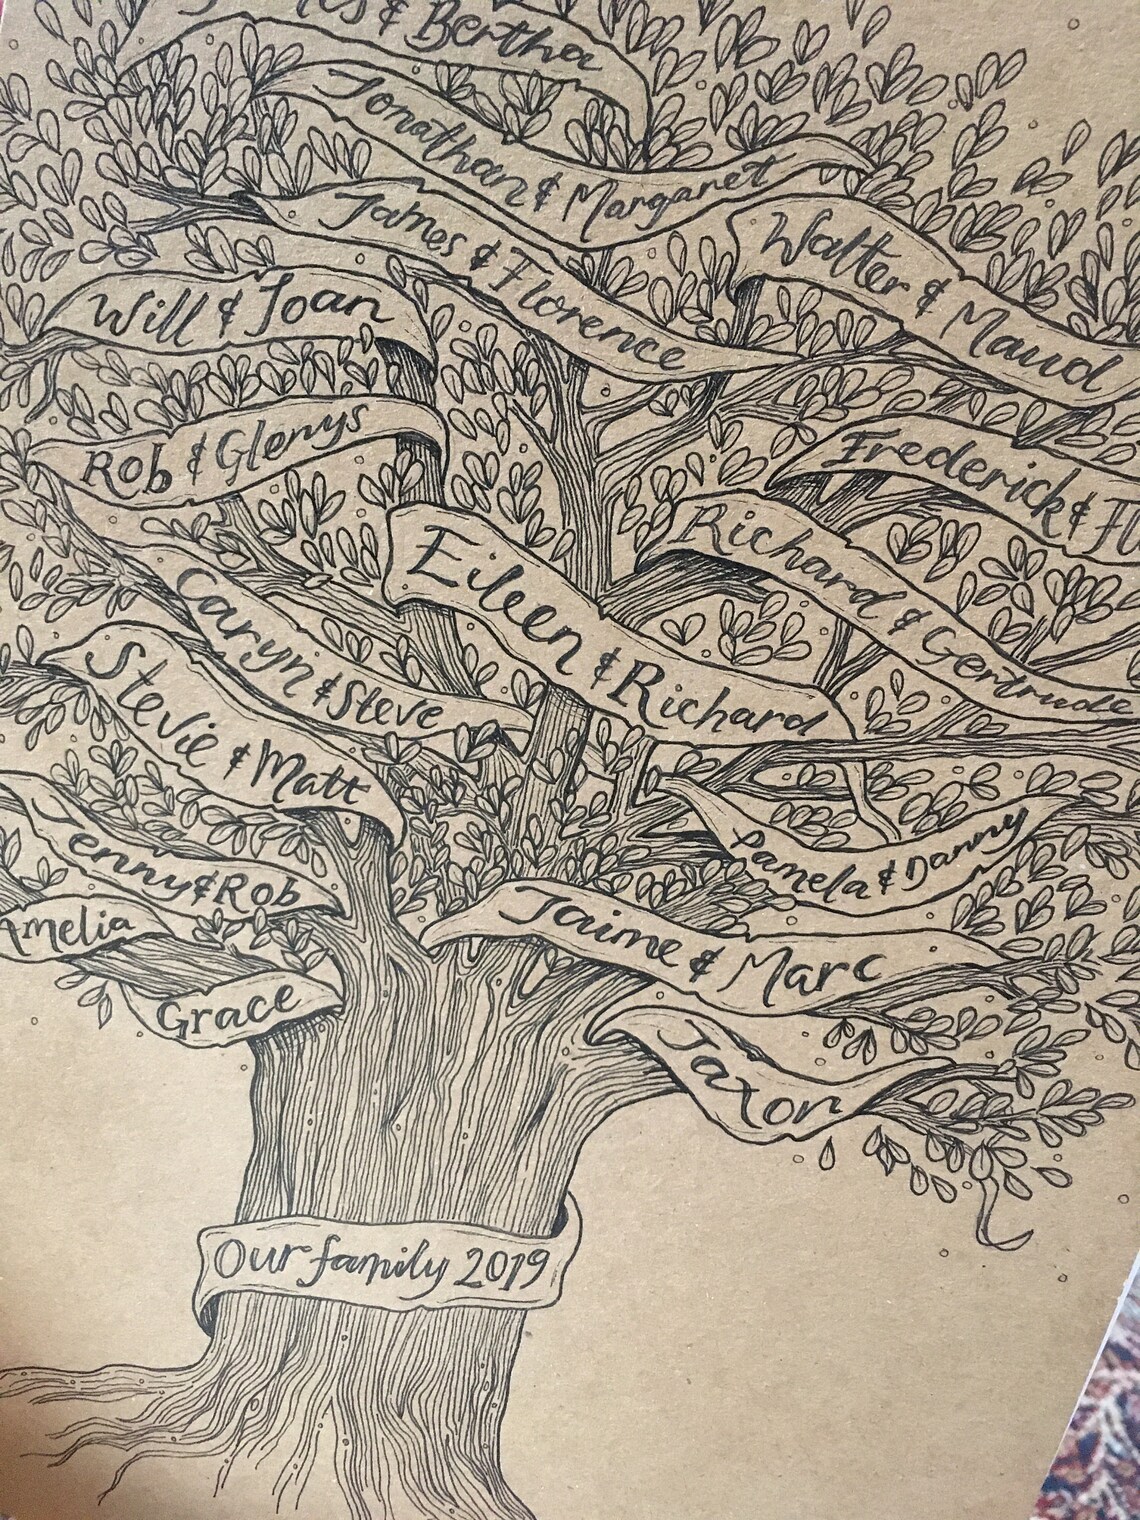 & Bertha
Jonathan & Margaret
James & Florence
Walter & Maud
Will & Joan
Rob & Glenys
Frederick &
Richard & Gertrude
Eileen & Richard
Caryn & Steve
Stevie & Matt
Pamela & Danny
Jenny & Rob
Amelia
Jaime & Marc
Grace
Jaxon
Our family 2019